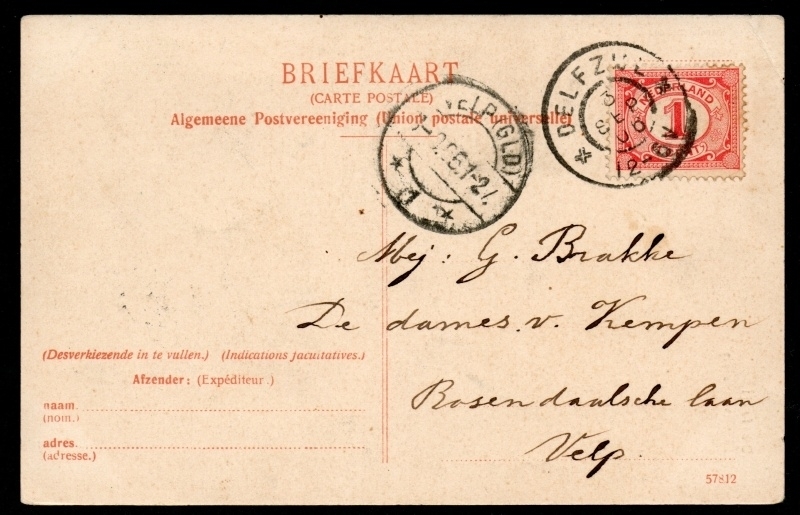 BRIEFKAART
(CARTE POSTALE)
Algemeene Postvereeniging (Union postale universelle)
VELP (GLD)
DELFZIJL
NEDERLAND
1
Mej: G. Brakke
De dames. v. Kempen
Rosendaalsche laan
Velp.
(Desverkiezende in te vullen.) (Indications facultatives.)
Afzender: (Expéditeur.)
naam.
(nom.)
adres.
(adresse.)
57812